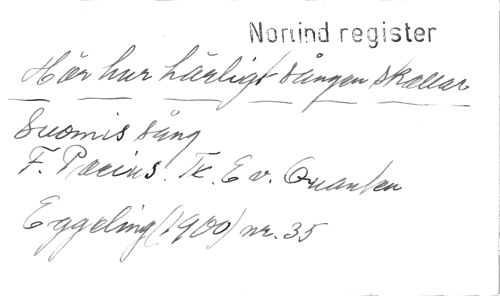 Norlind register
Hör hur härligt sången skallar
Suomis sång
F. Pacius. Tx. E v. Quanten
Eggeling (1900) nr. 35